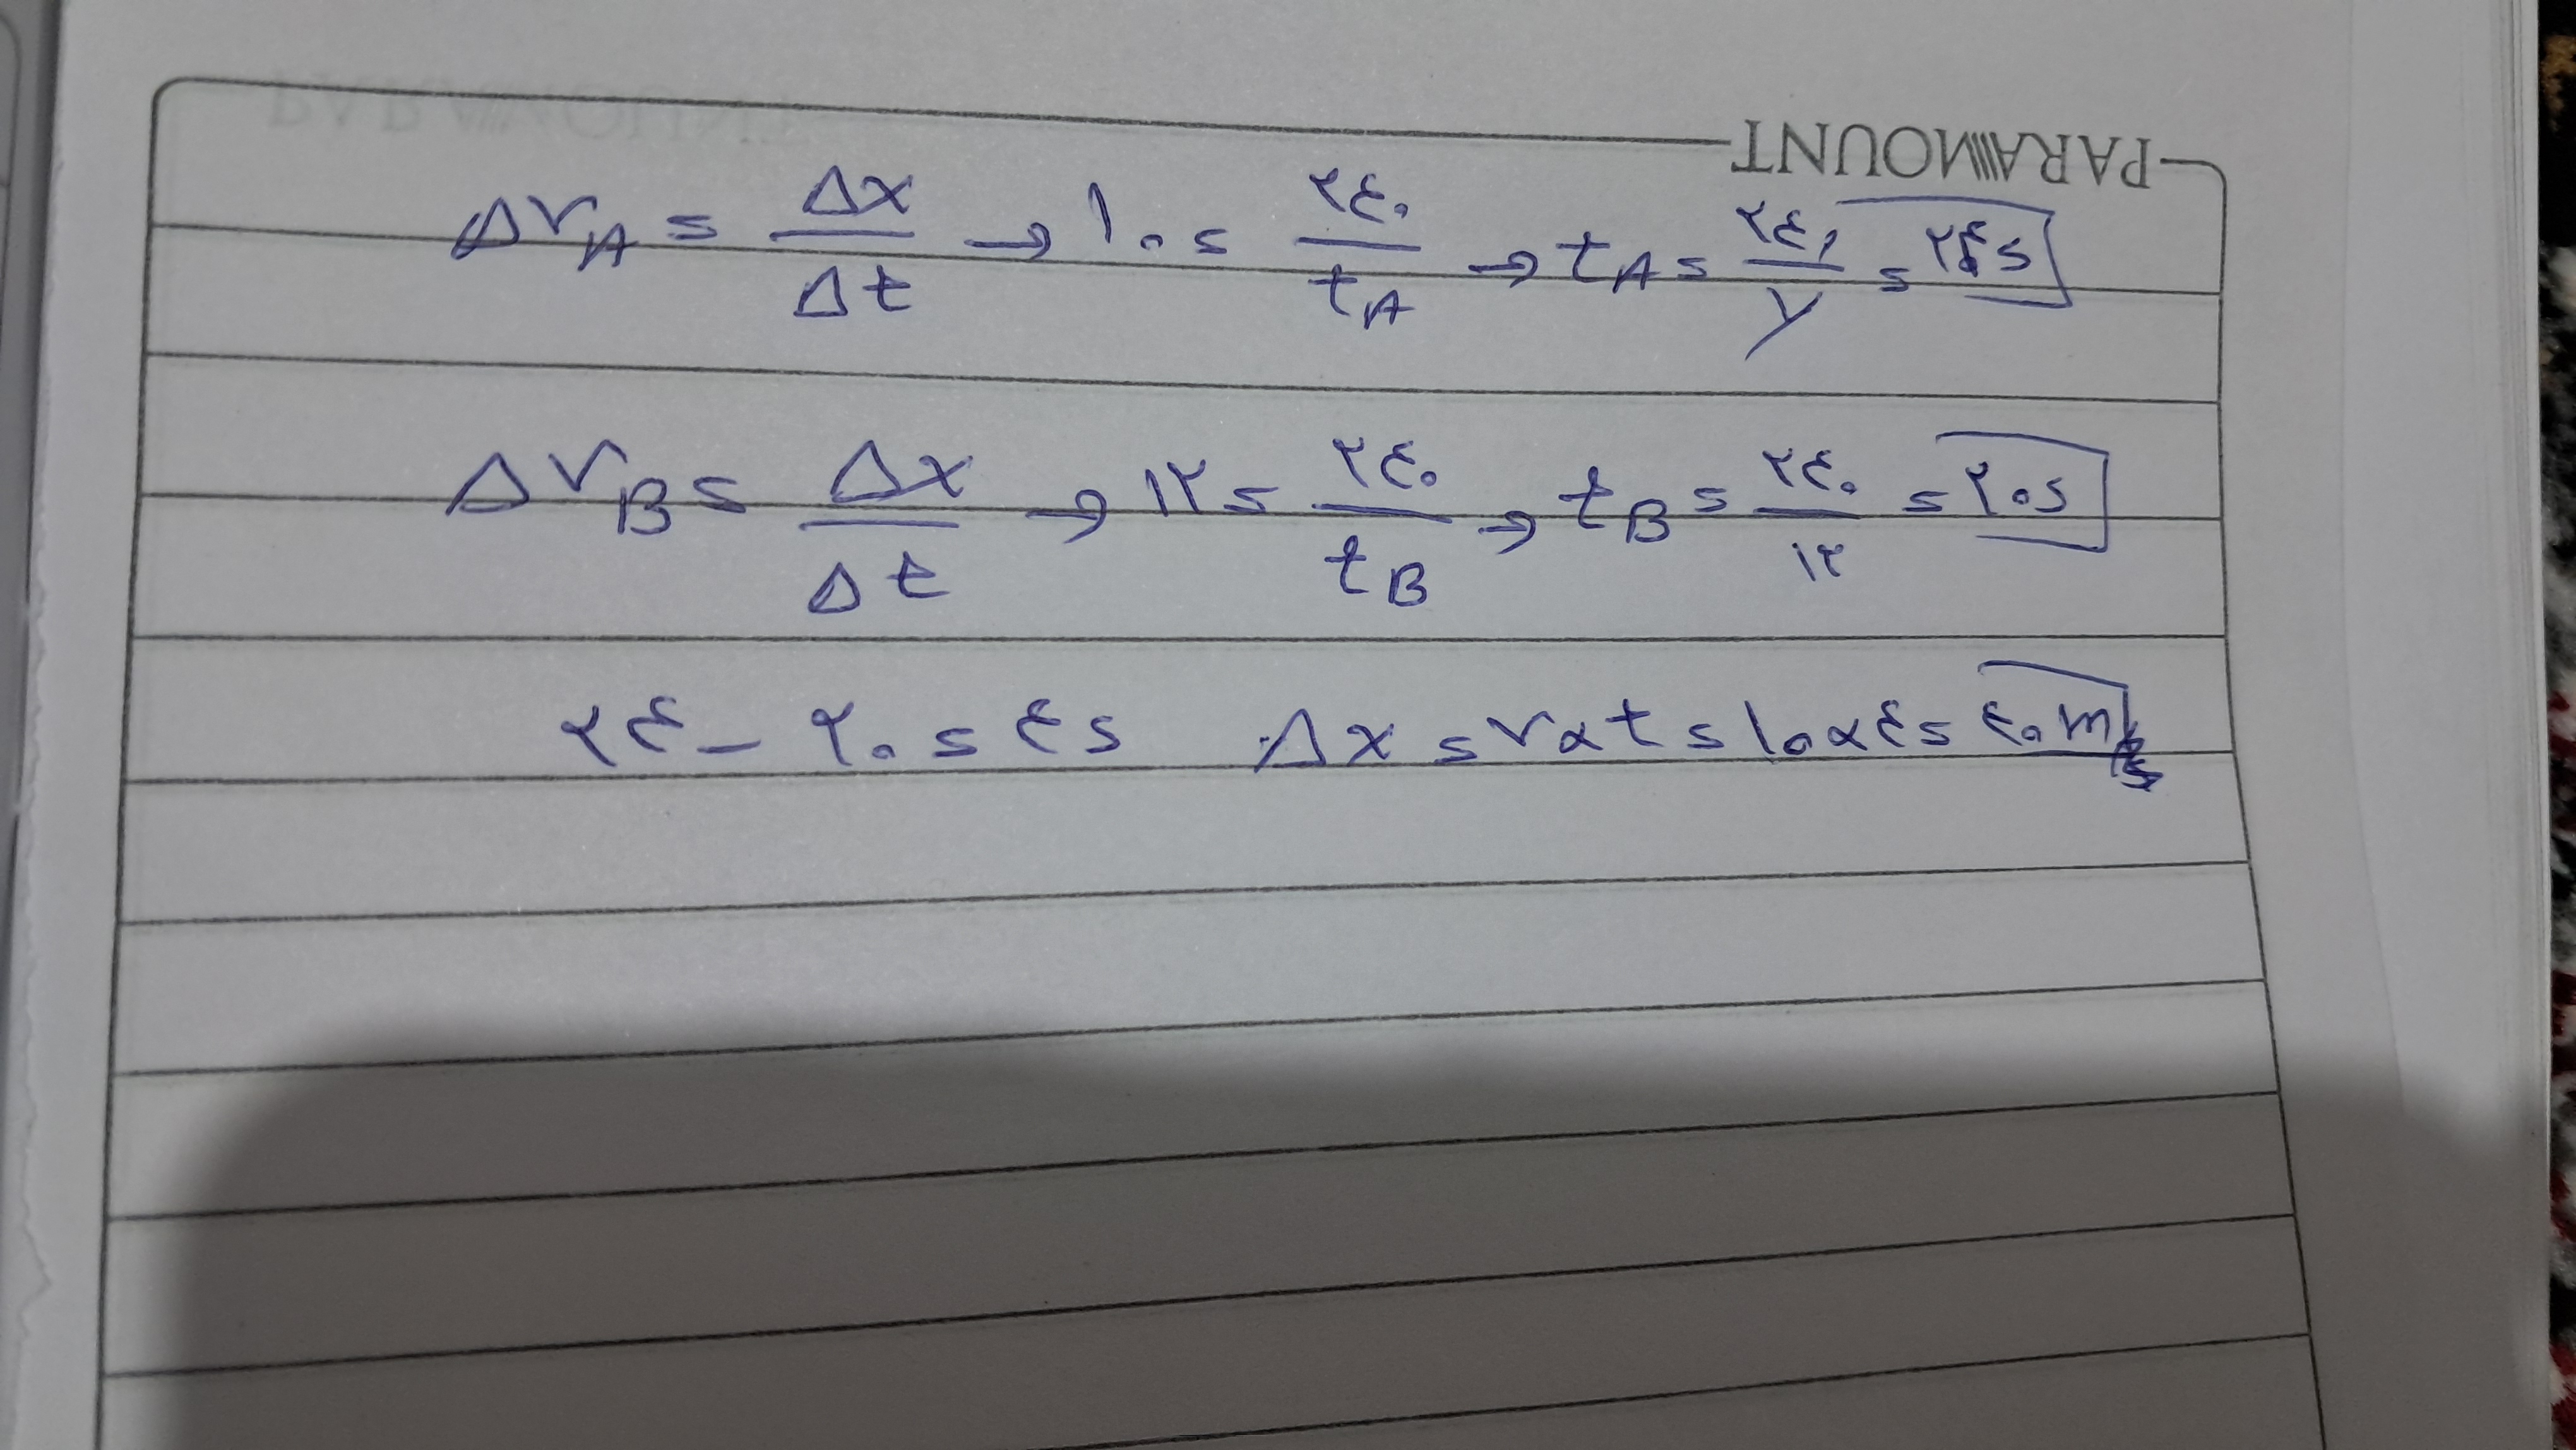 PARAMOUNT
ΔV_A = Δx/Δt → ۱۰ = ۲۴۰/t_A → t_A = ۲۴۰/۱۰ = ۲۴s
ΔV_B = Δx/Δt → ۱۲ = ۲۴۰/t_B → t_B = ۲۴۰/۱۲ = ۲۰s
۲۴ - ۲۰ = ۴s Δx = v × t = ۱۰ × ۴ = ۴۰m